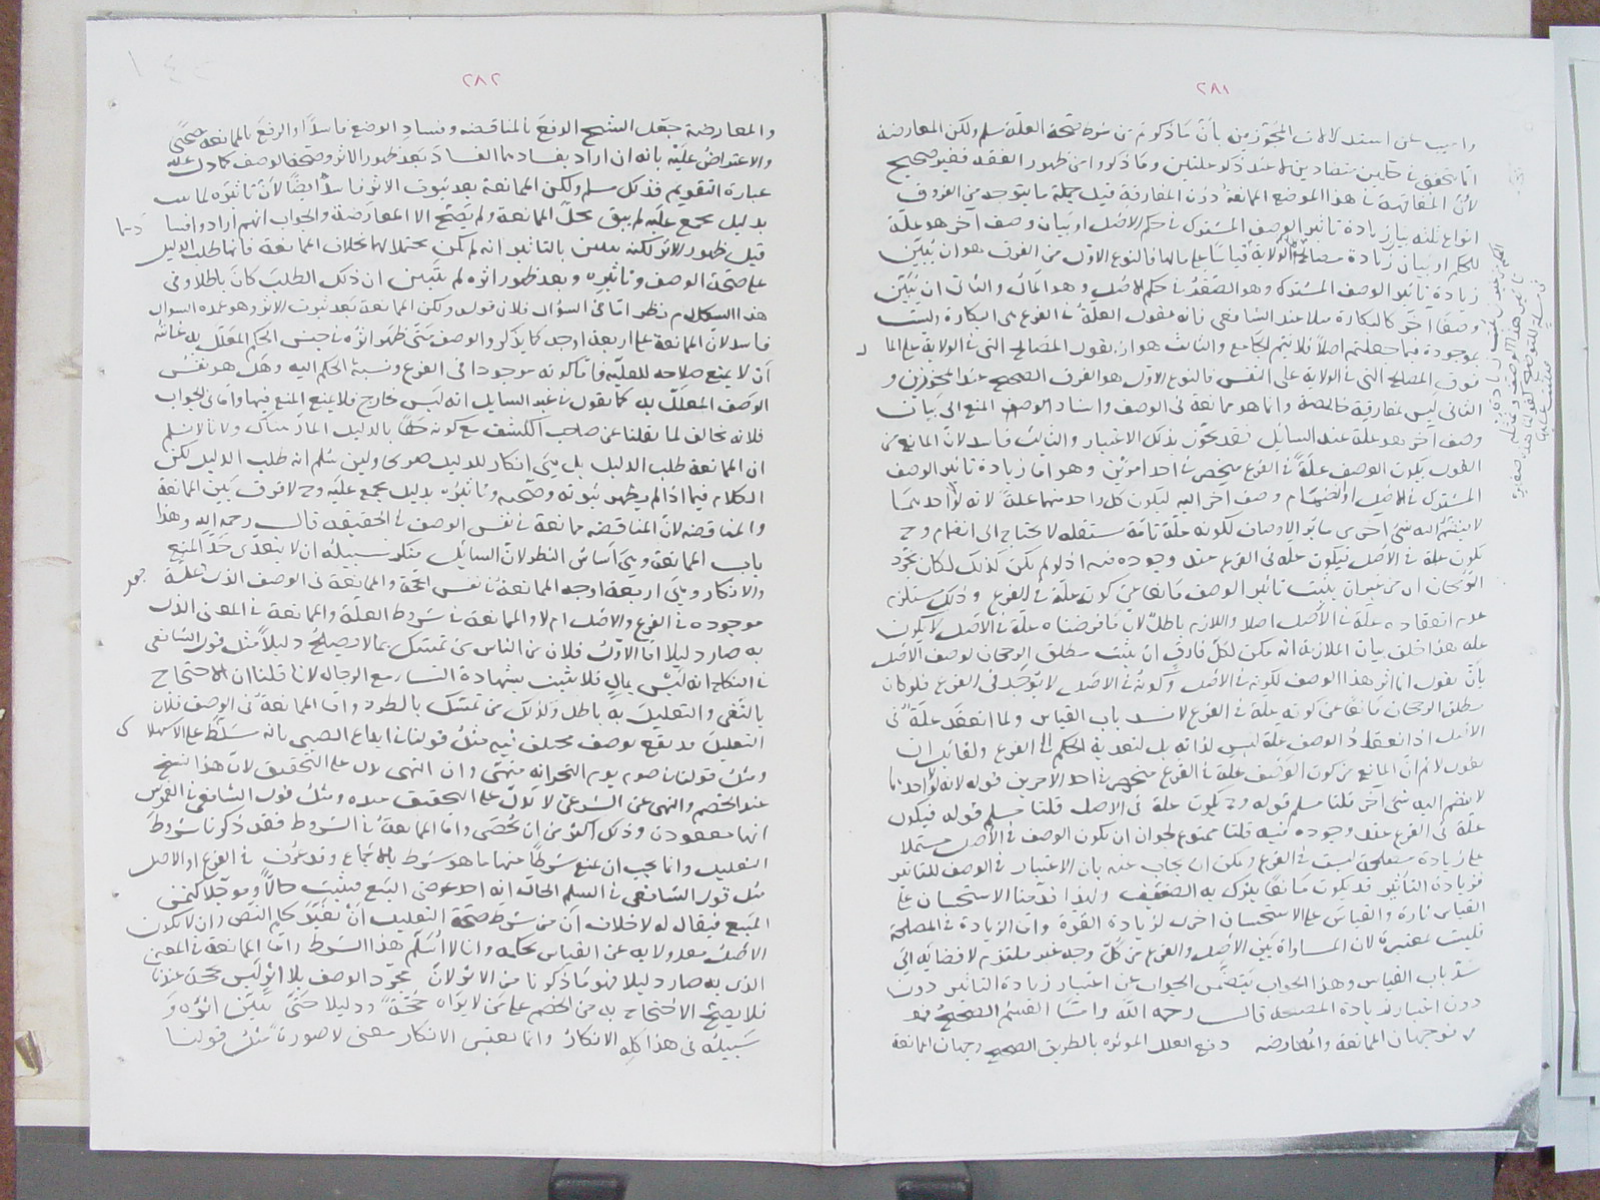 ٢٨١
واجيب عن استدلالات المجوزين بأن ما ذكرتم من شرط صحة العلة مسلم ولكن المعارضة
انما تتحقق في حكمين متضادين لا عند ذكر علتين وما ذكروا من ظهور الفقه فغير صحيح
لأن المفاقهة في هذا الموضع الممانعة دون المفارقة قيل جملة ما يتوجه من الفروق
انواع ثلثة بيان زيادة تاثير الوصف المشترك في حكم الاصل او بيان وصف آخر هو علة
للحكم او بيان زيادة مصالح الولاية قياسا على مالها فالنوع الاول من الفرق هو ان يبين
زيادة تاثير الوصف المشترك وهو الصغر في حكم الاصل وهو المال والثاني ان يبين
وصفا آخر كالبكارة مثلا عند الشافعي فانه يقول العلة في الفرع هي البكارة وليست
بموجودة فيما جعلتم اصلا فلا يتم الجامع والثالث هو ان يقول المصالح التي في الولاية على المال
فوق المصالح التي في الولاية على النفس فالنوع الاول هو الفرق الصحيح عند المجوزين و
الثاني ليس بمفارقة خالصة وانما هو ممانعة في الوصف واسناد المنع الى بيان
وصف آخر هو علة عند السائل فقد يجوز بذلك الاعتبار والثالث فاسد لان المانع من
وصف آخر اليه ليكون كل واحد منهما علة
يكون علة في الاصل فيكون علة في الفرع عند وجوده فيه اذ لو لم يكن كذلك لكان مجرد
الرجحان من غير ان يثبت تاثير الوصف مانعا عن كونه علة في الفرع وذلك يستلزم
عدم انعقاده علة في الاصل اصلا واللازم باطل لان ما فرضناه علة في الاصل لا يكون
علة هذا خلف بيان الملازمة انه يمكن لكل فارق ان يثبت مطلق الرجحان لوصف الاصل
بان يقول انما اثر هذا الوصف لكونه في الاصل وكونه في الاصل لا يوجد في الفرع فلو كان
مطلق الرجحان مانعا عن كونه علة في الفرع لانسد باب القياس ولما انعقد علة في
الاصل اذ انعقاد الوصف علة ليس لذاته بل لتعدية الحكم الى الفرع ولقائل ان
يقول لا نم ان المانع من كون الوصف علة في الفرع منحصر في احد الامرين قوله لانه لو لا احدهما
لا ينضم اليه شيء آخر قلنا مسلم قوله وح يكون علة في الاصل قلنا مسلم قوله فيكون
علة في الفرع عند وجوده فيه قلنا ممنوع لجواز ان يكون الوصف في الاصل مشتملا
على زيادة مصلحة ليست في الفرع ويمكن ان يجاب عنه بان الاعتبار في الوصف للتاثير
فزيادة التاثير قد يكون مانعا يترك به الضعيف ولهذا قدمنا الاستحسان على
القياس تارة والقياس على الاستحسان اخرى لزيادة القوة واما الزيادة في المصلحة
فليست بمعتبرة لان المساواة بين الاصل والفرع من كل وجه غير ملتزم لافضائه الى
سد باب القياس وهذا الجواب يتضمن الجواب عن اعتبار زيادة التاثير دون
دون اعتبار زيادة المصلحة قال رحمه الله واما القسم الصحيح فهو
فوجهان الممانعة والمعارضة دفع العلل المؤثرة بالطريق الصحيح وجهان الممانعة
٢٨٢
والمعارضة جعل الشيخ الدفع بالمناقضة وفساد الوضع فاسدا والدفع بالممانعة صحيحا
والاعتراض عليه بانه ان اراد بفسادهما الفساد بعد ظهور الاثر وصحة الوصف كما دل عليه
عبارة التقويم فذلك مسلم ولكن الممانعة بعد ثبوت الاثر فاسدا ايضا لان تاثيره لما ثبت
بدليل مجمع عليه لم يبق محل الممانعة ولم يصح الا المعارضة والجواب انهم ارادوا فسادهما
قبل ظهور الاثر لكنه تبين بالتاثير انه لم يكن محتملا لها بخلاف الممانعة فانها طلب الدليل
على صحة الوصف وتاثيره وبعد ظهور اثره لم يتبين ان ذلك الطلب كان باطلا وفي
هذا الكلام نظر اما في السؤال فلان قوله ولكن الممانعة بعد ثبوت الاثر وهو عمدة السؤال
فاسد لان الممانعة على اربعة اوجه كما يذكر والوصف متى ظهر اثره في جنس الحكم المعلل به غايته
ان لا يمنع صلاحه للعلية فاما كونه موجودا في الفرع ونسبة الحكم اليه وهل هو نفس
الوصف المعلل به كما يقول عنه السايل انه ليس خارج فلا يمنع المنع فيها واما في الجواب
فلانه مخالف لما نقلنا عن صاحب الكشف مع كونه حقا بالدليل المار هناك ولانا لا نسلم
ان الممانعة طلب الدليل بل هي انكار للدليل ولئن سلم انه طلب الدليل لكن
الكلام فيما اذا لم يظهر ثبوته وصحته وتاثيره بدليل مجمع عليه وح لا فرق بين الممانعة
والمناقضة لان المناقضة ممانعة في نفس الوصف في الحقيقة قال رحمه الله وهذا
باب الممانعة وهي اساس النظر لان السائل منكر فسبيله ان لا يتعدى حد المنع
والانكار وهي اربعة اوجه الممانعة في نفس الحجة والممانعة في الوصف الذي جعل علة
موجودة في الفرع والاصل ام لا والممانعة في شروط العلة والممانعة في المعنى الذي
به صار دليلا اما الاول فلان من الناس من تمسك بما لا يصلح دليلا مثل قول الشافعي
في النكاح انه ليس بمال فلا يثبت بشهادة النساء مع الرجال لانا قلنا ان الاحتجاج
بالنفي والتعليل به باطل وكذلك من تمسك بالطرد واما الممانعة في الوصف فلان
التعليل قد يقع بوصف مختلف فيه مثل قولنا في ايداع الصبي بانه سلطه على الاستهلاك
ومثل قولنا في صوم يوم النحر انه منهي وان النهي يدل على التحقيق لان هذا نسخ
عند الخصم والنهي عن الشرعي لا يدل على التحقيق عنده ومثل قول الشافعي في الغموس
انها معقودة وذلك اكثر من ان يحصى واما الممانعة في الشروط فقد ذكرنا شروط
التعليل وانما يجب ان يمنع شرطا منها ما هو شرط بالاجماع وقد عدم في الفرع او الاصل
مثل قول الشافعي في السلم الحال انه احد عوضي البيع فيثبت حالا ومؤجلا كثمن
المبيع فيقال له لا خلاف ان من شرط صحة التعليل ان لا يغير حكم النص وان لا يكون
الاصل معدولا به عن القياس بحكمه وانا لا اسلم هذا الشرط واما الممانعة في المعنى
الذي به صار دليلا فهو ما ذكرنا من الاثر لان مجرد الوصف بلا اثر ليس بحجة عندنا
فلا يصح الاحتجاج به من الخصم على من لا يراه حجة ودليلا حتى يتبين اثره و
سبيله في هذا كله الانكار وانما يعتبر الانكار معنى لا صورة مثل قولنا